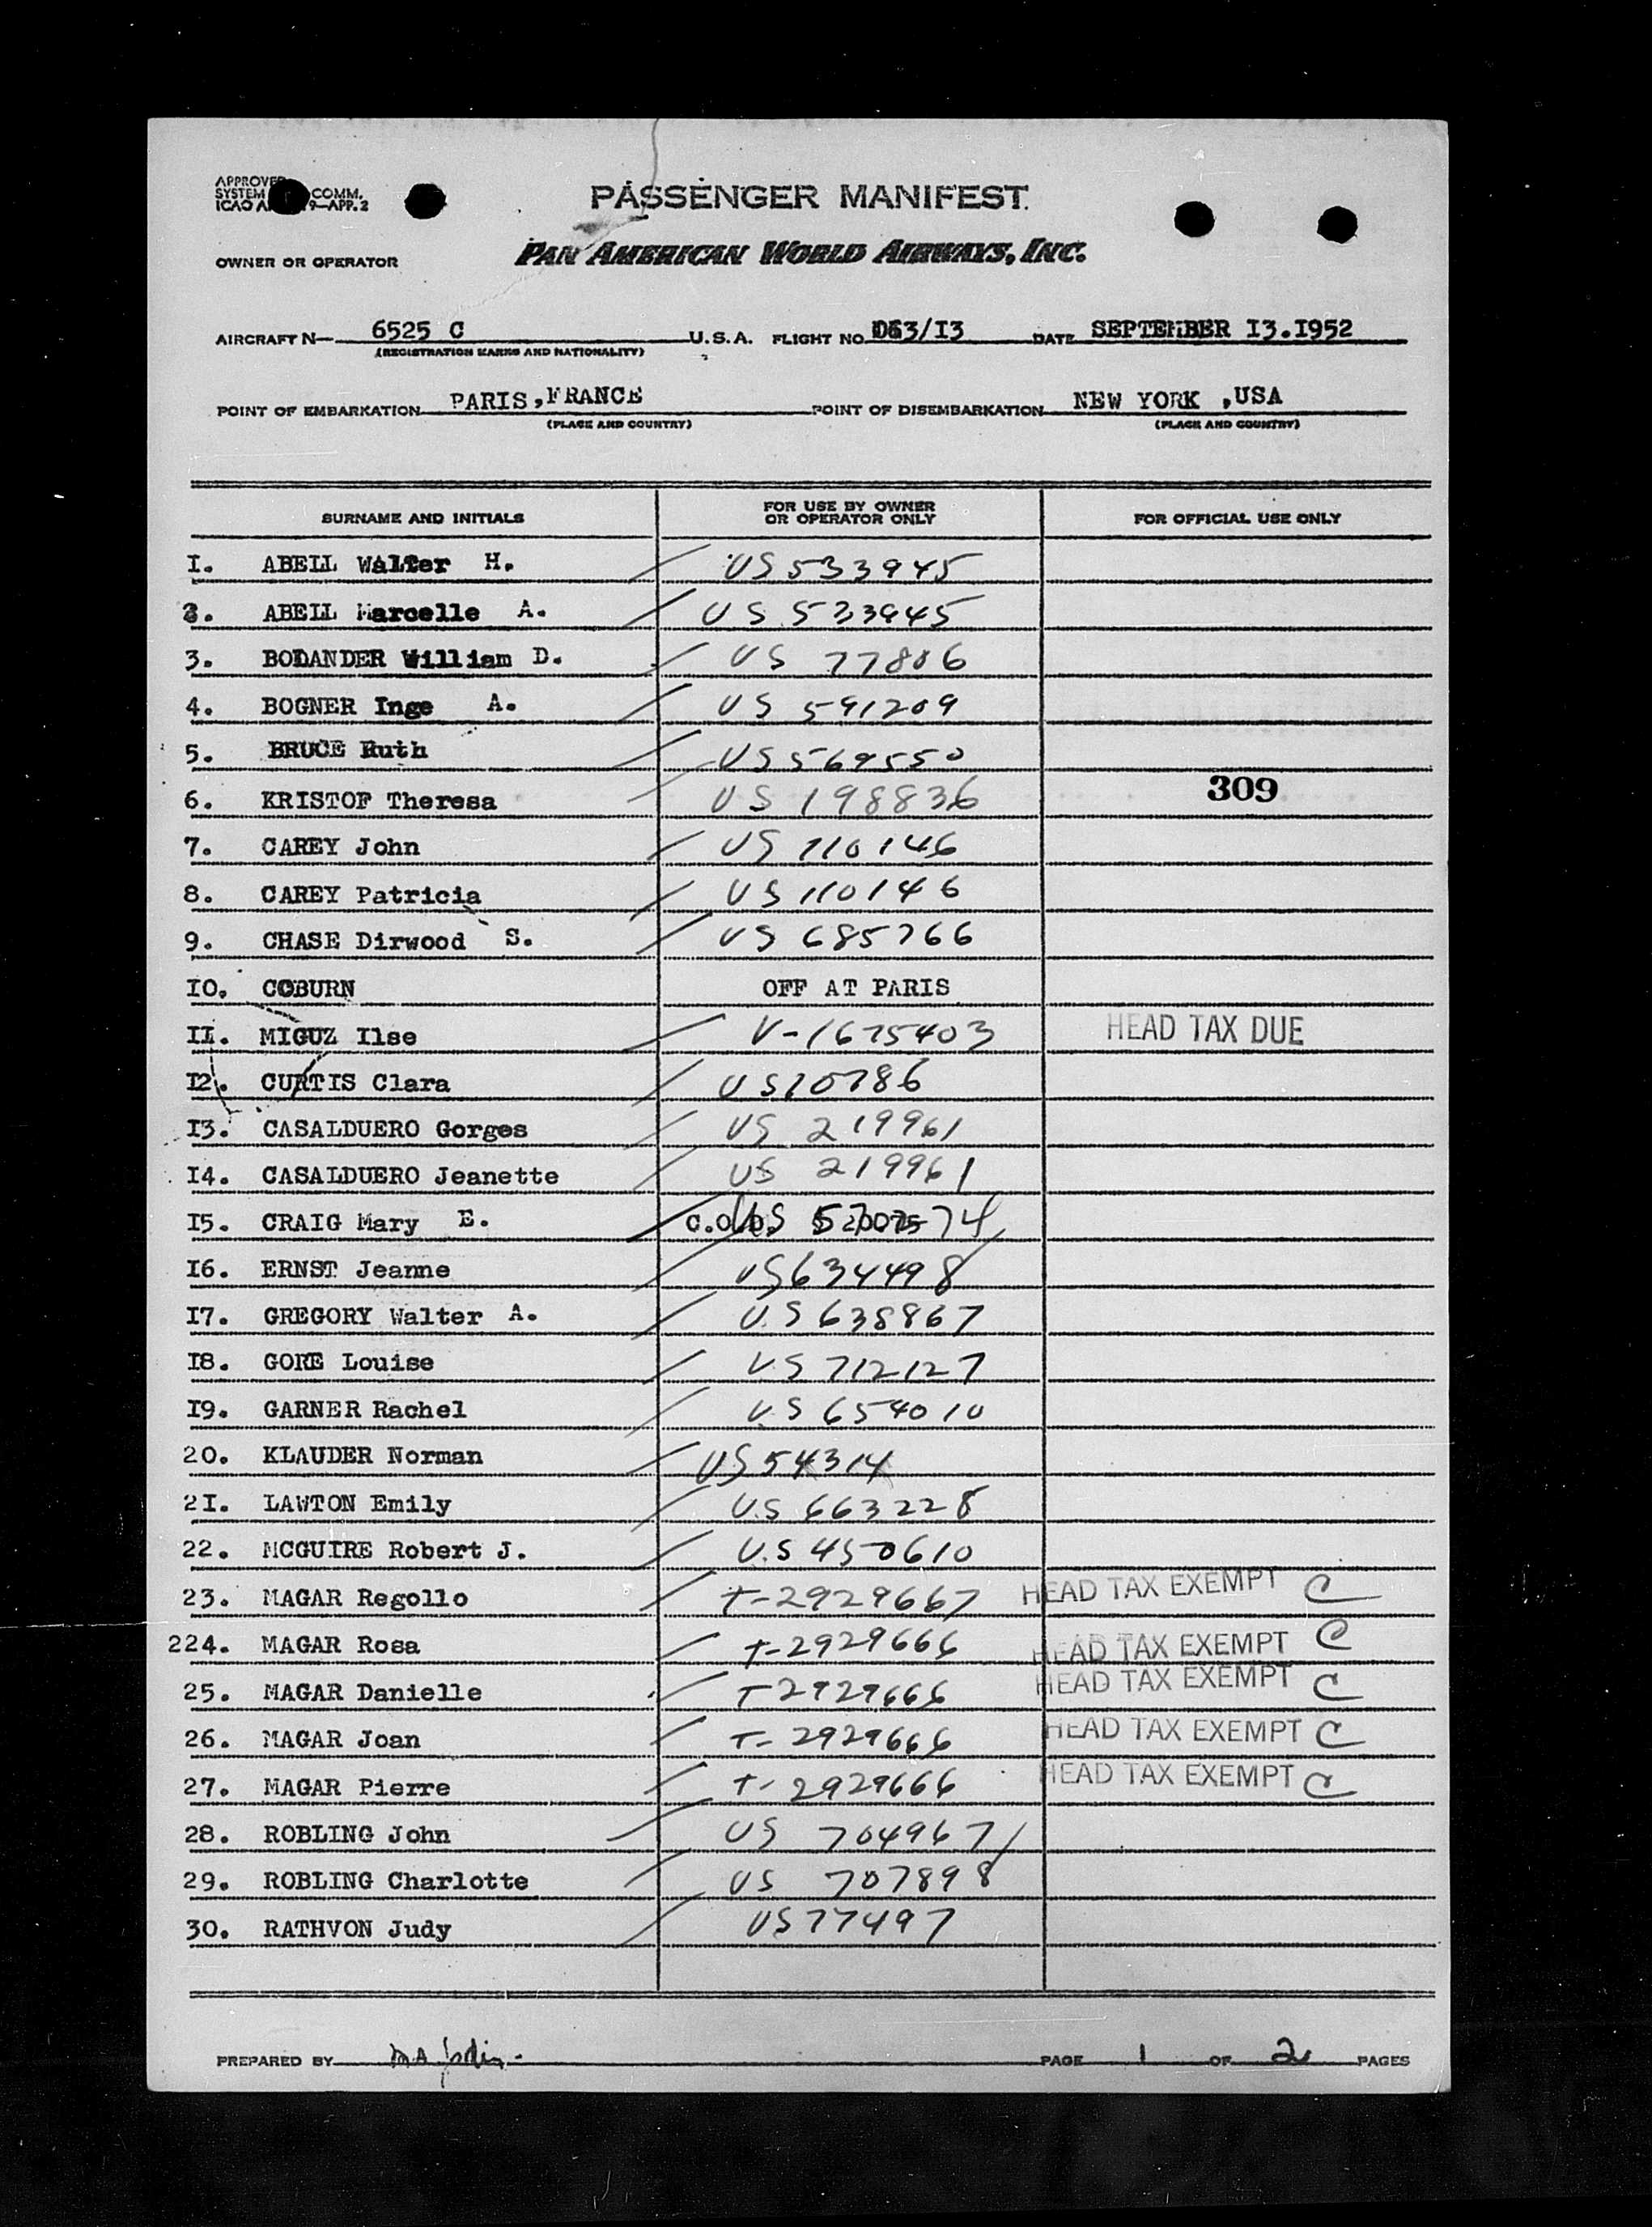 APPROVED
SYSTEM COMM.
ICAO 9—APP. 2
PASSENGER MANIFEST
OWNER OR OPERATOR PAN AMERICAN WORLD AIRWAYS, INC.
AIRCRAFT N— 6525 C U.S.A. FLIGHT NO. 063/I3 DATE SEPTEMBER I3.I952
(REGISTRATION MARKS AND NATIONALITY)
POINT OF EMBARKATION PARIS,FRANCE POINT OF DISEMBARKATION NEW YORK ,USA
(PLACE AND COUNTRY) (PLACE AND COUNTRY)
SURNAME AND INITIALS FOR USE BY OWNER OR OPERATOR ONLY FOR OFFICIAL USE ONLY
I. ABELL Walter H. US 533945
2. ABELL Marcelle A. US 533945
3. BODANDER William D. US 77806
4. BOGNER Inge A. US 591209
5. BRUCE Ruth US 569550
6. KRISTOF Theresa US 198836 309
7. CAREY John US 110146
8. CAREY Patricia US 110146
9. CHASE Dirwood S. US 685766
IO. COBURN OFF AT PARIS
II. MIGUZ Ilse V-1675403 HEAD TAX DUE
I2. CURTIS Clara US 10786
I3. CASALDUERO Gorges US 219961
I4. CASALDUERO Jeanette US 219961
I5. CRAIG Mary E. US
I6. ERNST Jeanne US 634498
I7. GREGORY Walter A. U.S 638867
I8. GORE Louise U.S 712127
I9. GARNER Rachel U.S 654010
20. KLAUDER Norman US 54314
2I. LAWTON Emily U.S 663228
22. MCGUIRE Robert J. U.S 450610
23. MAGAR Regollo T-2929667 HEAD TAX EXEMPT C
224. MAGAR Rosa T-2929666 HEAD TAX EXEMPT C
25. MAGAR Danielle T-2929666 HEAD TAX EXEMPT C
26. MAGAR Joan T-2929666 HEAD TAX EXEMPT C
27. MAGAR Pierre T-2929666 HEAD TAX EXEMPT C
28. ROBLING John US 704967
29. ROBLING Charlotte US 707898
30. RATHVON Judy US 77497
PREPARED BY PAGE 1 OF 2 PAGES